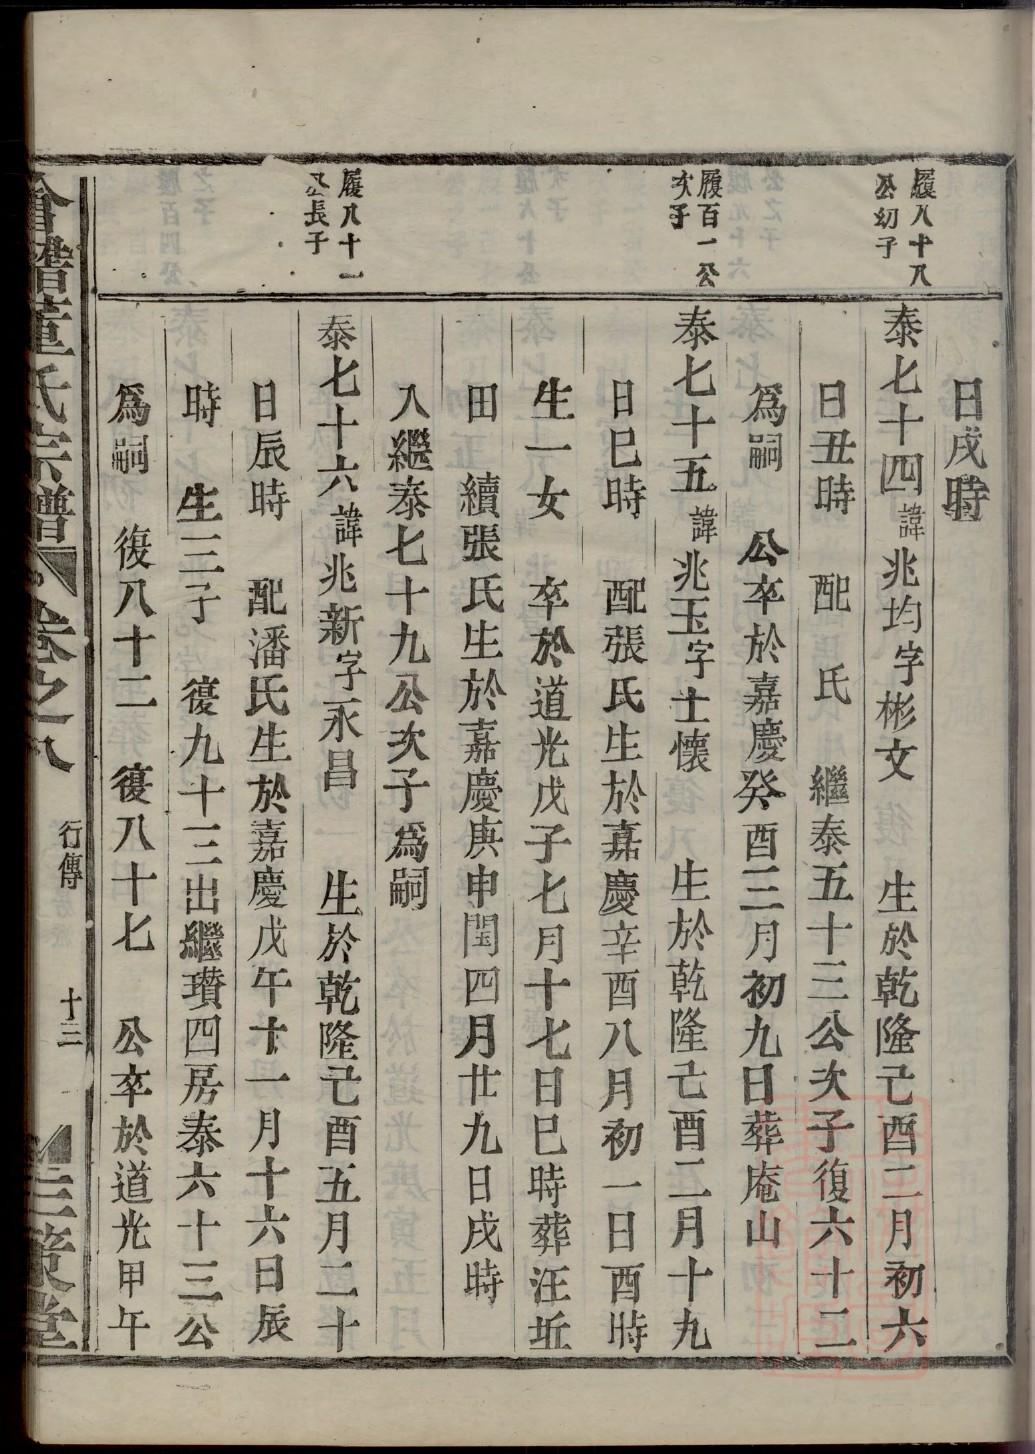 日戌時
履八十八
公幼子
泰七十四諱兆均字彬文 生於乾隆己酉二月初六
日丑時 配 氏 繼泰五十三公次子復六十二
爲嗣 公卒於嘉慶癸酉三月初九日葬庵山
履百一公
次子
泰七十五諱兆玉字士懷 生於乾隆己酉二月十九
日巳時 配張氏生於嘉慶辛酉八月初一日酉時
生一女 卒於道光戊子七月十七日巳時葬汪坵
田 續張氏生於嘉慶庚申閏四月廿九日戌時
入繼泰七十九公次子爲嗣
履八十一
公長子
泰七十六諱兆新字永昌 生於乾隆己酉五月二十
日辰時 配潘氏生於嘉慶戊午十一月十六日辰
時 生三子 復九十三出繼瓚四房泰六十三公
爲嗣 復八十二 復八十七 公卒於道光甲午
會稽董氏宗譜 卷之八 行傳 十三 三策堂